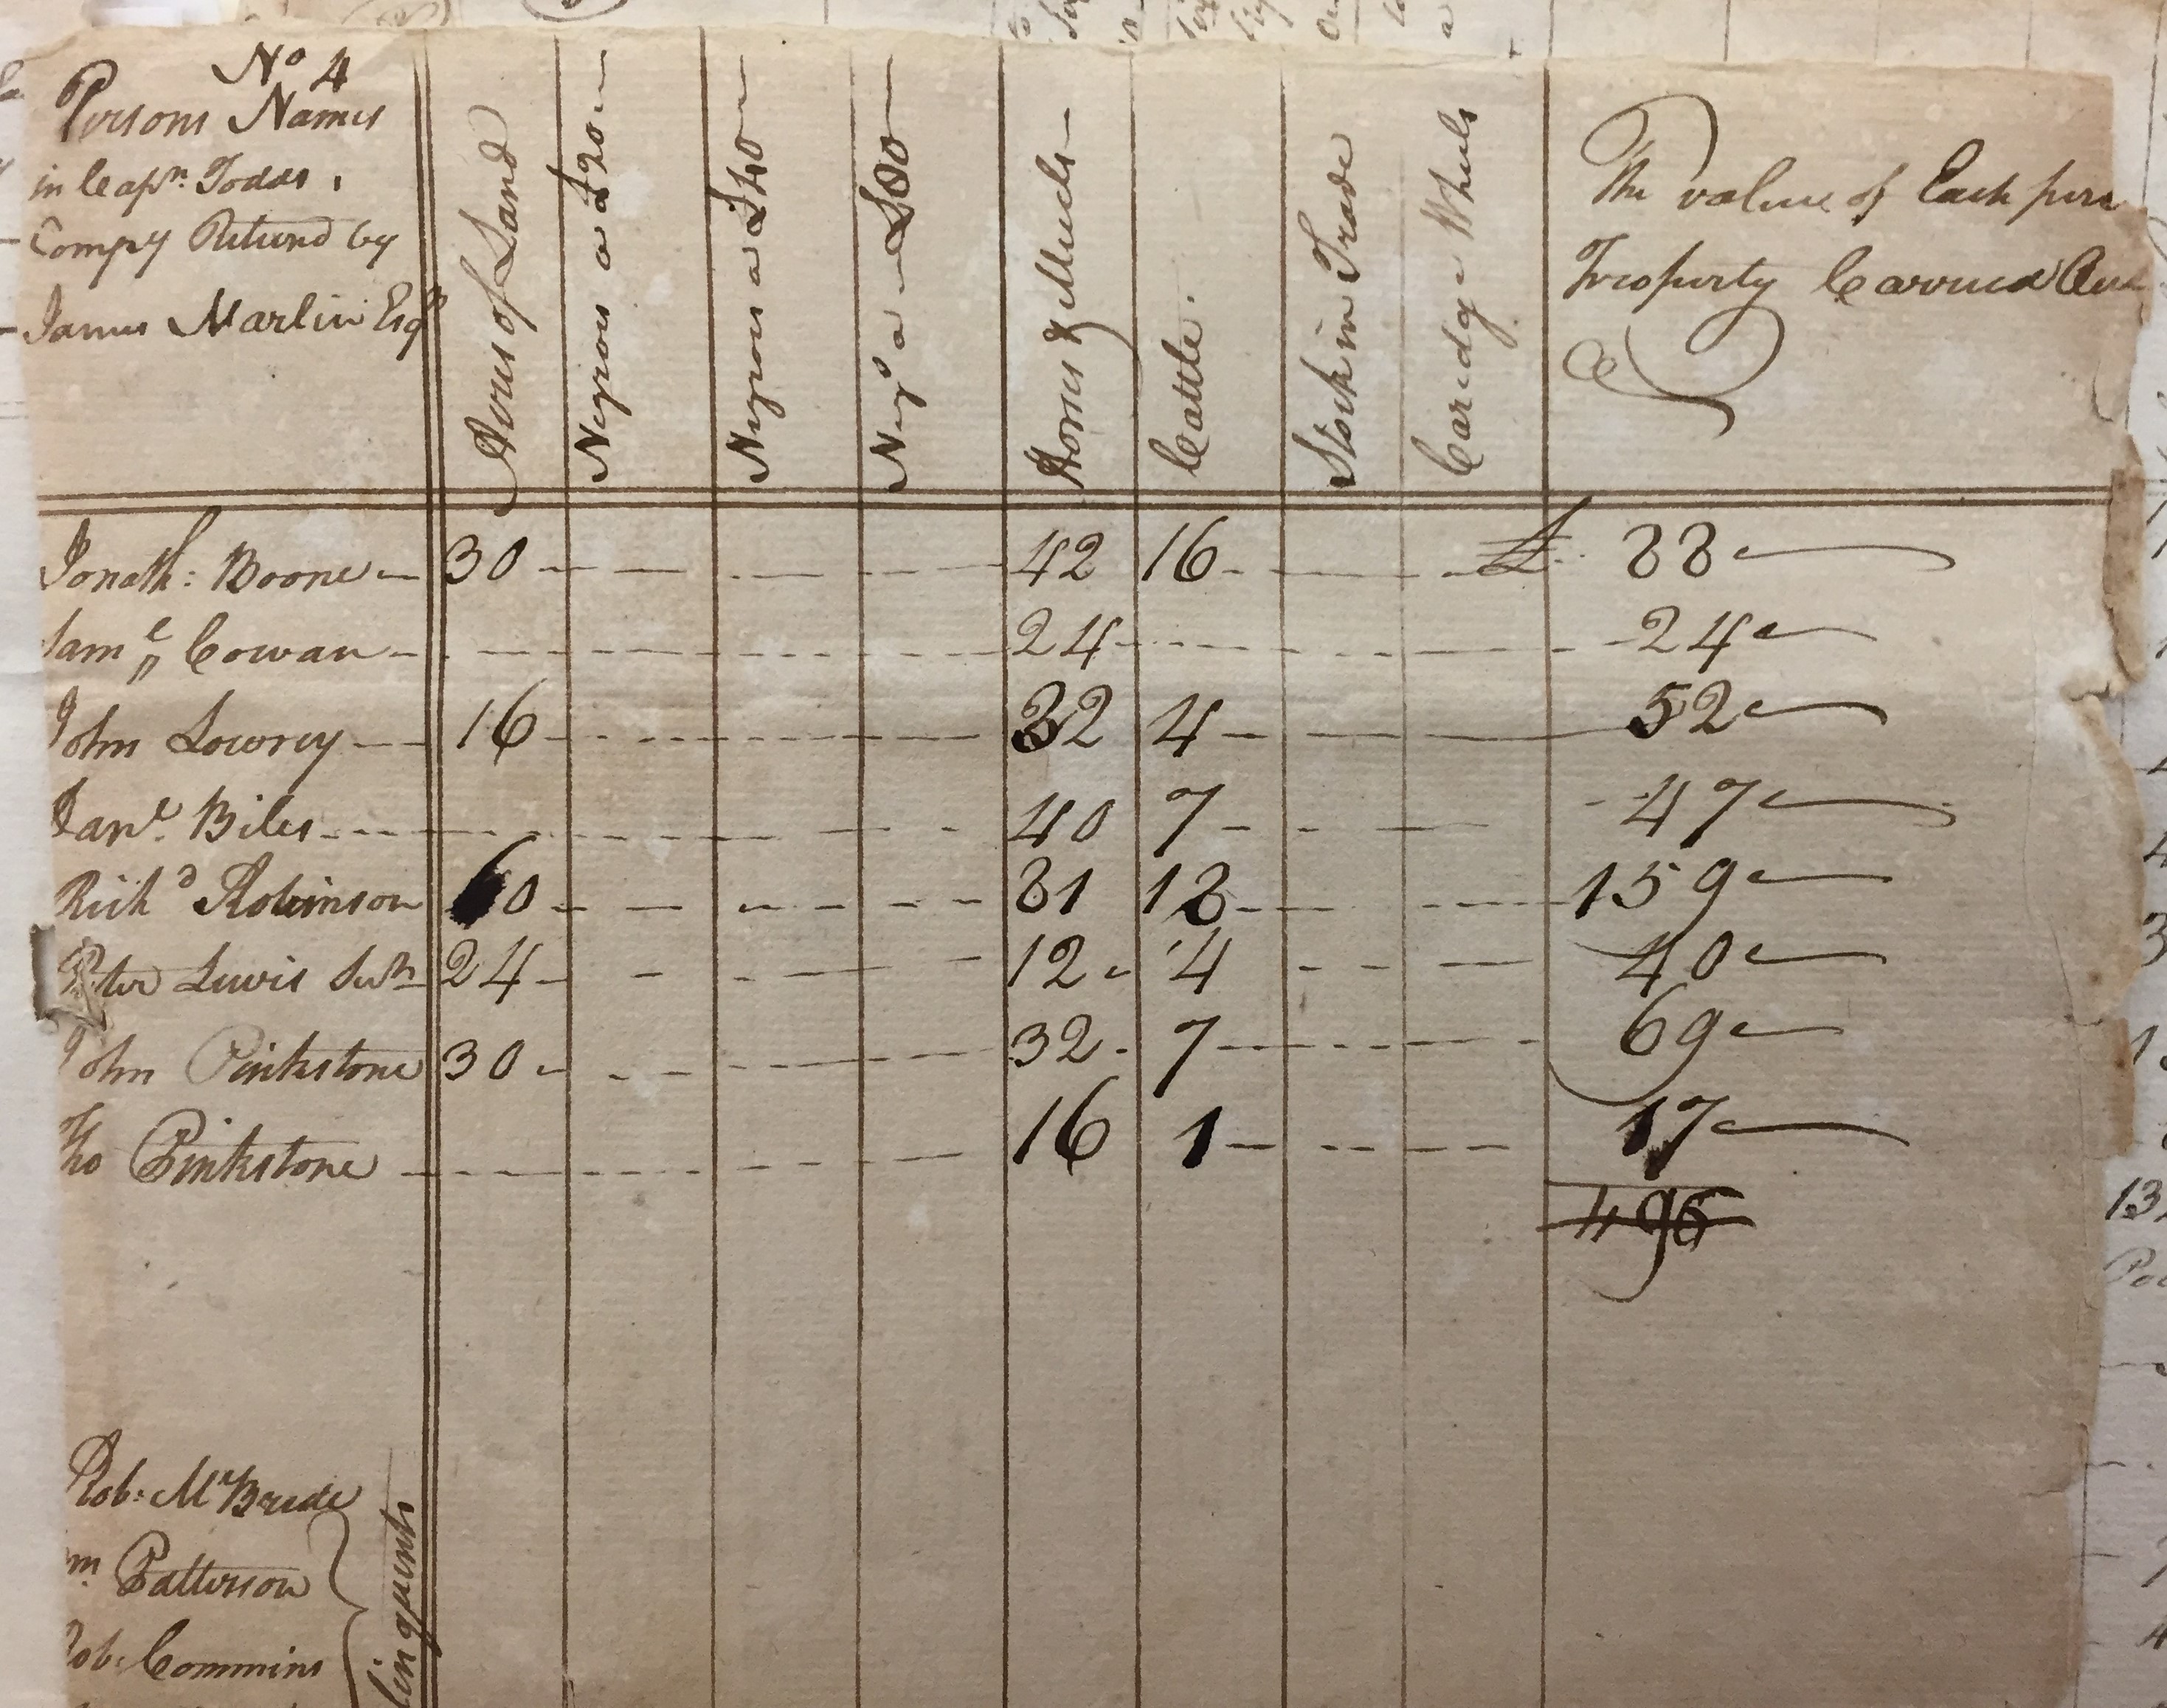 No 4
Persons Names
in Capn. Todds
Compy Returnd by
James Marlin Esqr
Acres of Land
Negroes a £20
Negroes a £40
Negs a £80
Horses & Muels
Cattle.
Stock in Trade
Caridge Wheels
The value of Each pers
Property Carried Out
Jonath: Boone 30 42 16 £ 88
Saml Cowan 24 24
John Lowrey 16 32 4 52
Danl. Biles 40 7 47
Richd Robinson 60 81 18 159
Peter Lewis 24 12 4 40
John Pinkstone 30 32 7 69
Tho Pinkstone 16 1 17
496
Rob: McBride
m Patterson
Rob: Commins
linquents